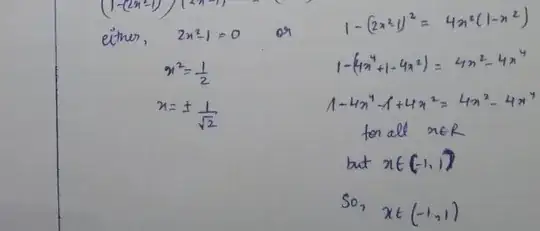 (1-(2x²-1)²) (2x²-1)
either, 2x²-1 = 0 or
x² = 1/2
x = ± 1/√2
1-(2x²-1)² = 4x²(1-x²)
1-(4x⁴+1-4x²) = 4x²-4x⁴
1-4x⁴-1+4x² = 4x²-4x⁴
for all x∈R
but x∈(-1,1)
So, x∈(-1,1)